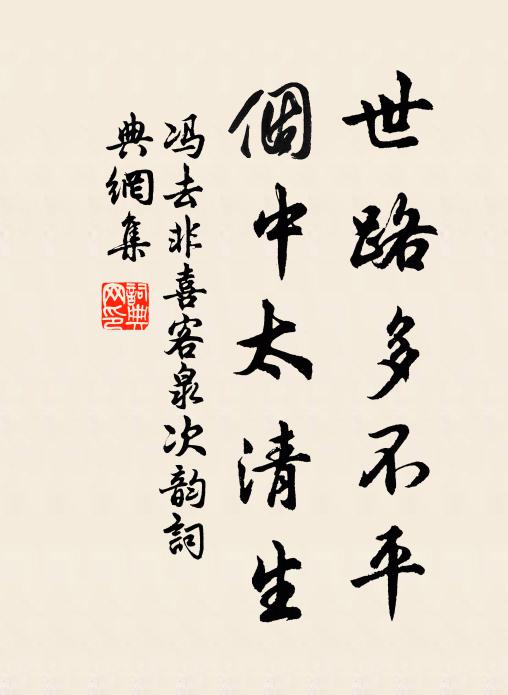 世路多不平
個中太清生
冯去非喜客泉次韵詞
典網集
詞典
网印